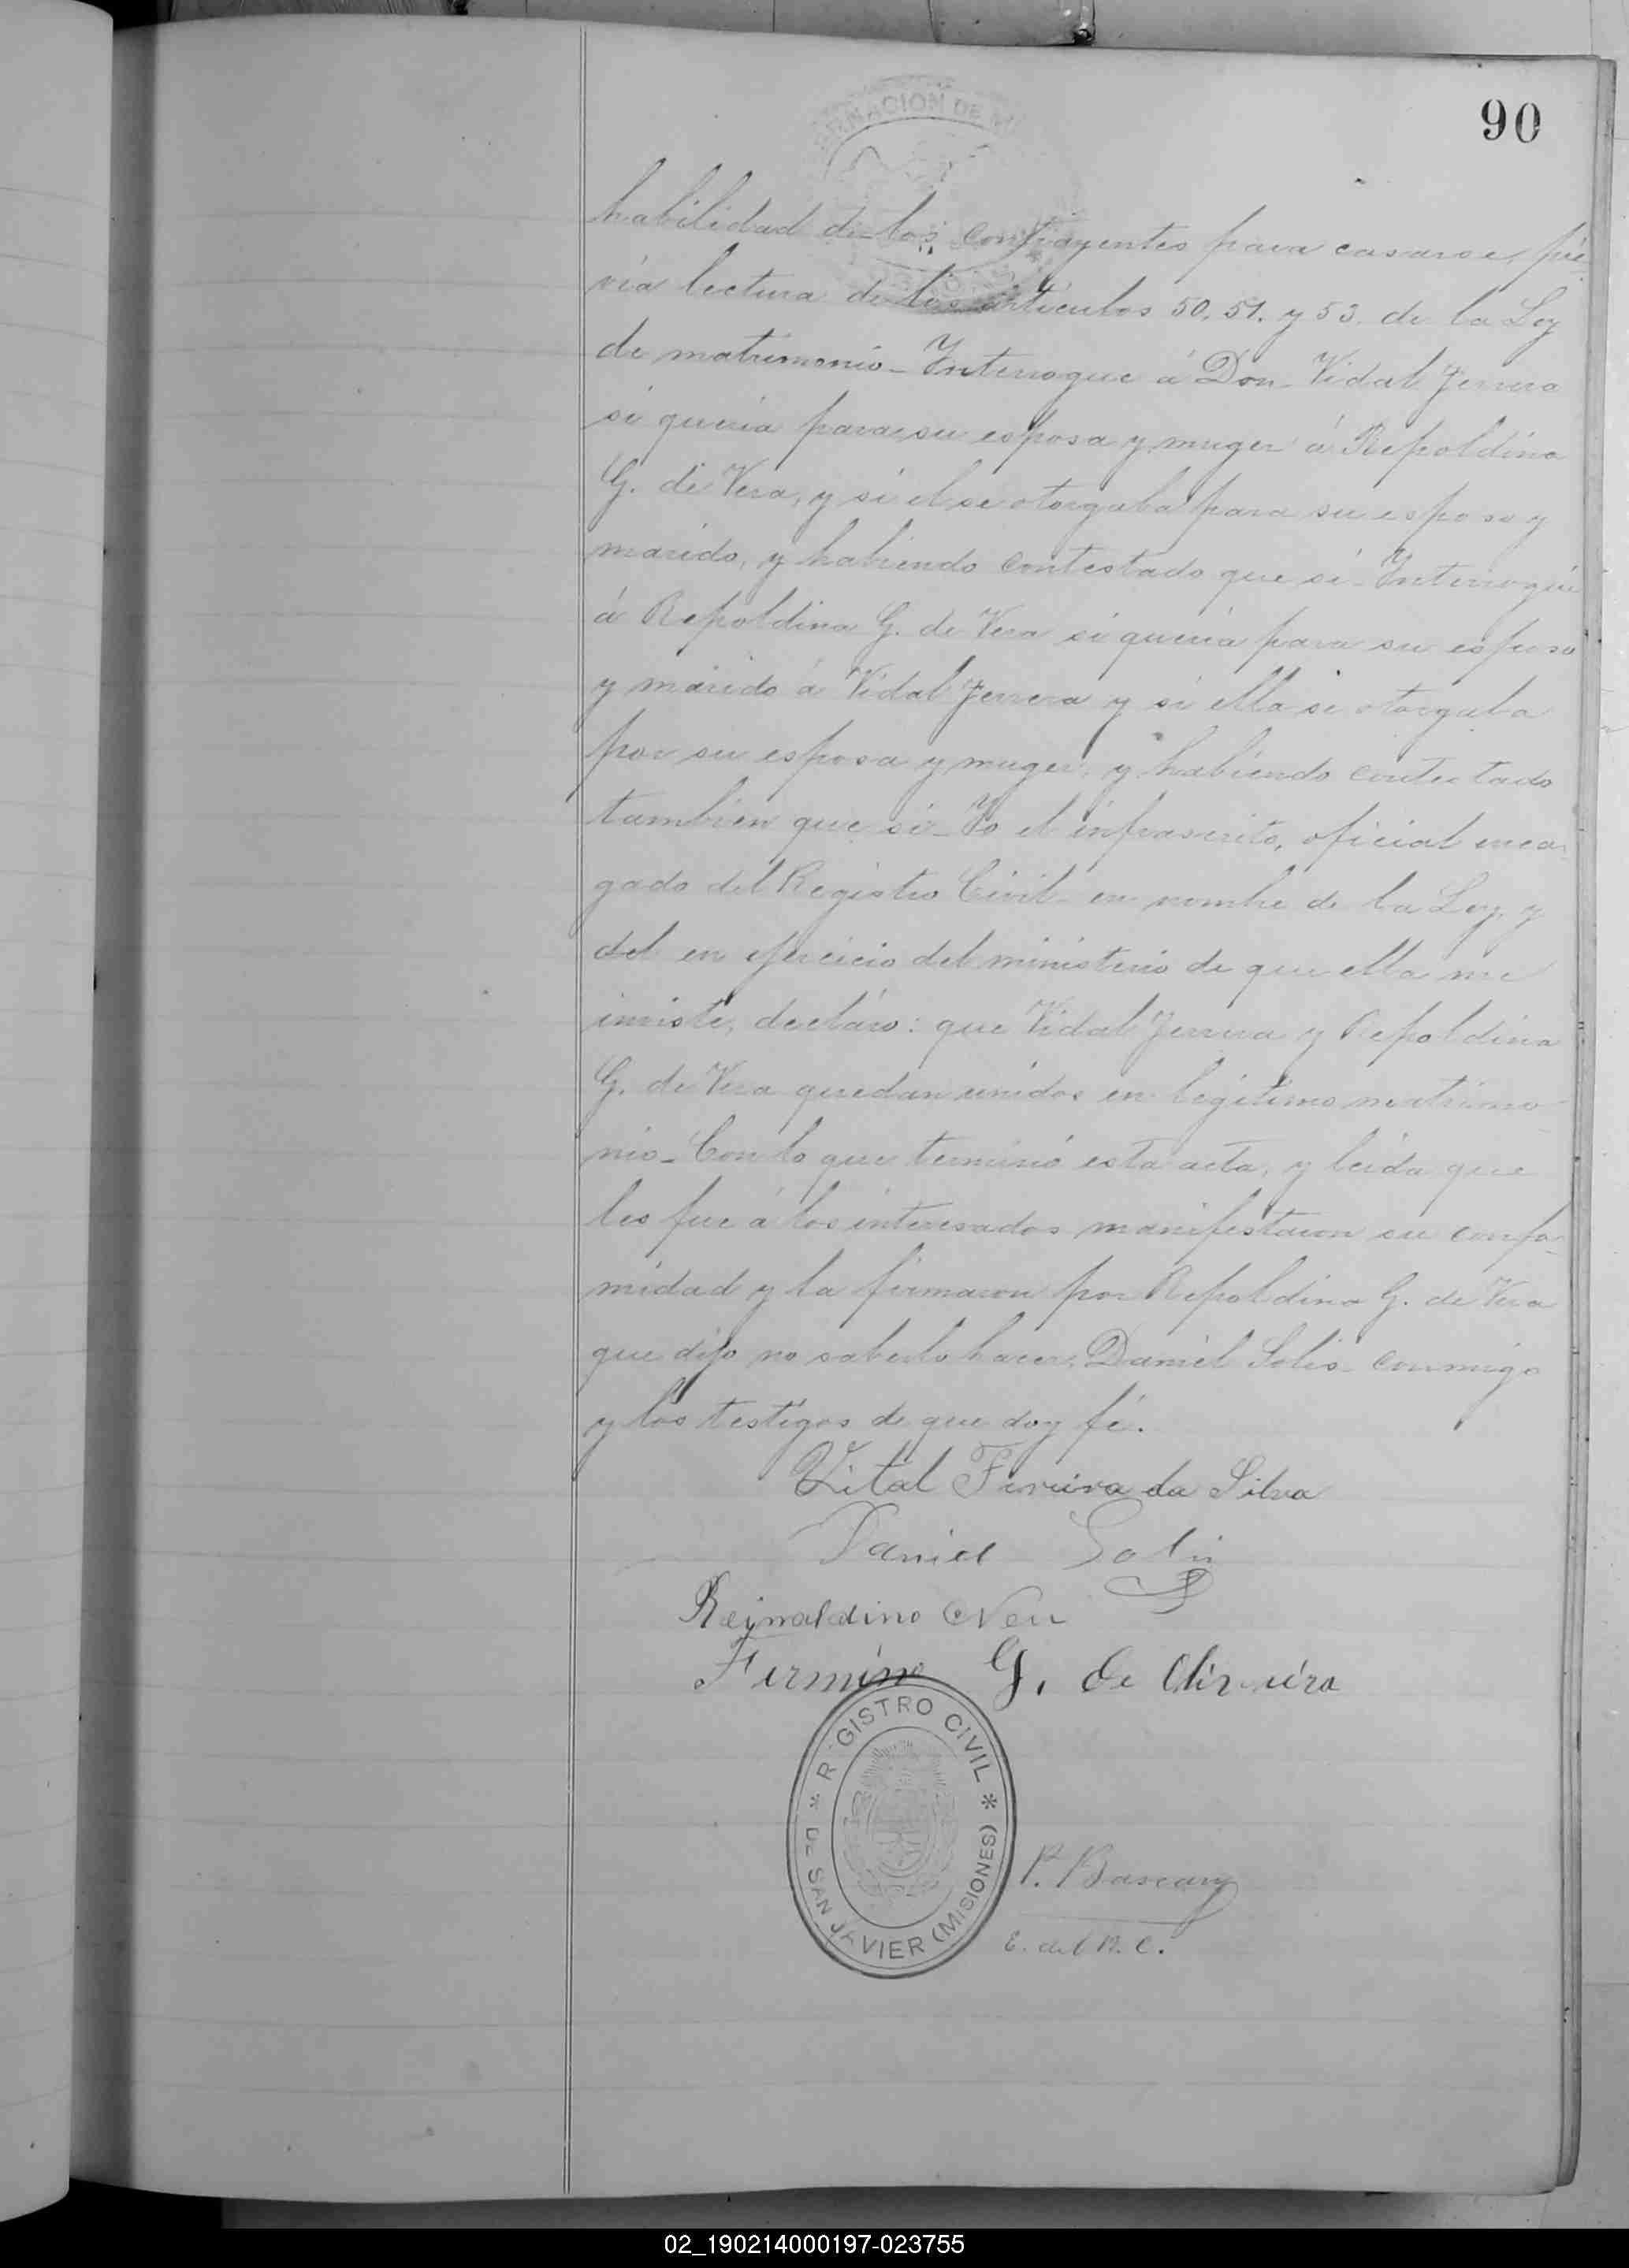 90
habilidad de los contrayentes para casarse, pré-
via lectura de los articulos 50, 51. y 53. de la Ley
de matrimonio_ Interrogue á Don Vidal Ferrera
si queria para su esposa y muger á Repoldina
G. de Vera, y si el se otorgaba para su esposo y
marido, y habiendo contestado que si_ Interrogué
á Repoldina G. de Vera si queria para su esposo
y marido á Vidal Ferrera y si ella se otorgaba
por su esposa y muger, y habiendo contestado
tambien que si_ Yo el infrascrito, oficial encar
gado del Registro Civil en nombre de la Ley, y
del en ejercicio del ministerio de que ella me
inviste, declaro: que Vidal Ferrera y Repoldina
G. de Vera quedan unidos en legitimo matrimo-
nio_ Con lo que terminó esta acta, y leida que
les fue á los interesados manifestaron su confor
midad y la firmaron por Repoldina G. de Vera
que dijo no saberlo hacer, Daniel Solis_ conmigo
y los testigos de que doy fé.
Vital Fereira da Silva
Daniel Solis
Reinaldino Neu
Firmino G. de Oliveira
R GISTRO CIVIL * DE SAN JAVIER (MISIONES) *
P. Bascary
E. del R. C.
02_190214000197-023755